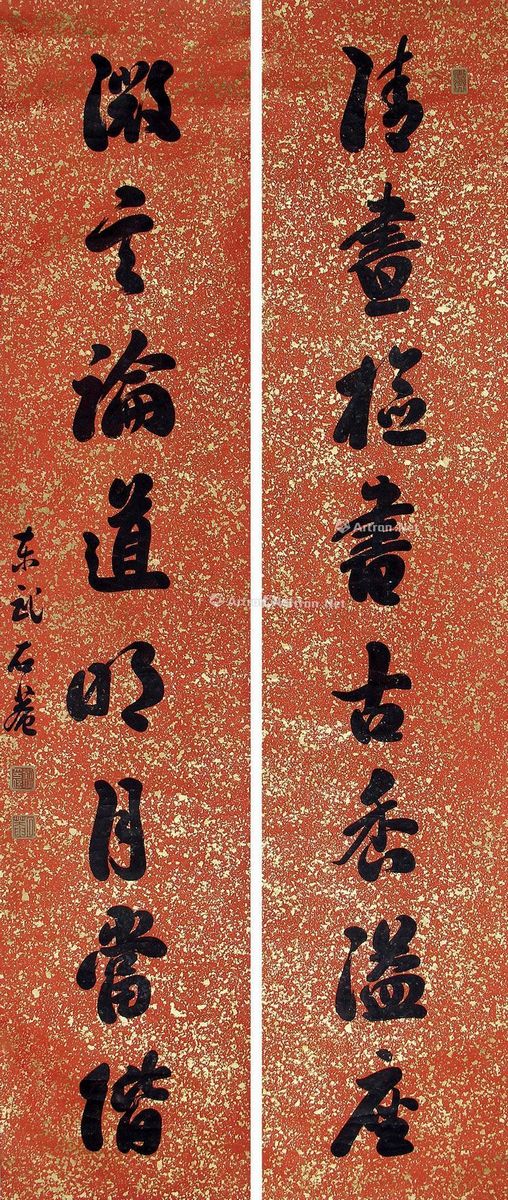 清晝檢書古香溢座
微言論道明月當階
東武石菴
Artron.Net
Artron.Net